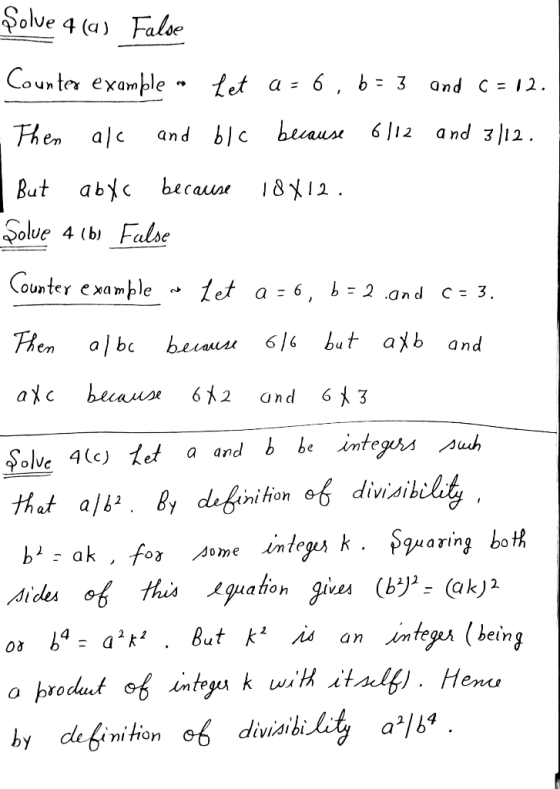 Solve 4 (a) False
Counter example → Let a = 6, b = 3 and c = 12.
Then a|c and b|c because 6|12 and 3|12.
But ab∤c because 18∤12.
Solve 4 (b) False
Counter example → Let a = 6, b = 2 and c = 3.
Then a|bc because 6|6 but a∤b and
a∤c because 6∤2 and 6∤3
Solve 4(c) Let a and b be integers such
that a|b². By definition of divisibility,
b² = ak, for some integer k. Squaring both
sides of this equation gives (b²)² = (ak)²
or b⁴ = a²k². But k² is an integer (being
a product of integer k with itself). Hence
by definition of divisibility a²|b⁴.